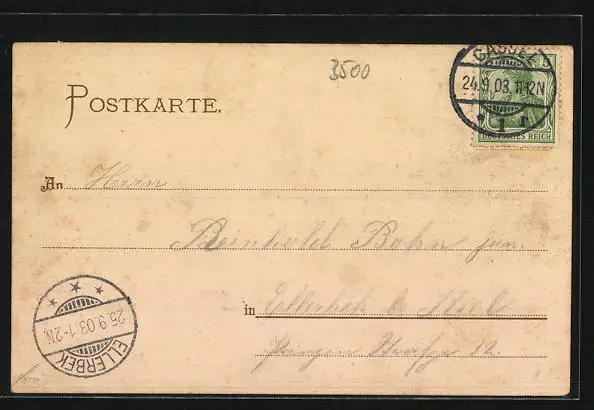 3500
CASSEL
24.9.03.11-12N
* 1 r
DEUTSCHES REICH
POSTKARTE.
An Herrn
Reinhold Bahn jun.
in Ellerbek b. Kiel
Straße 12
25.9.03.1-2N
ELLERBEK